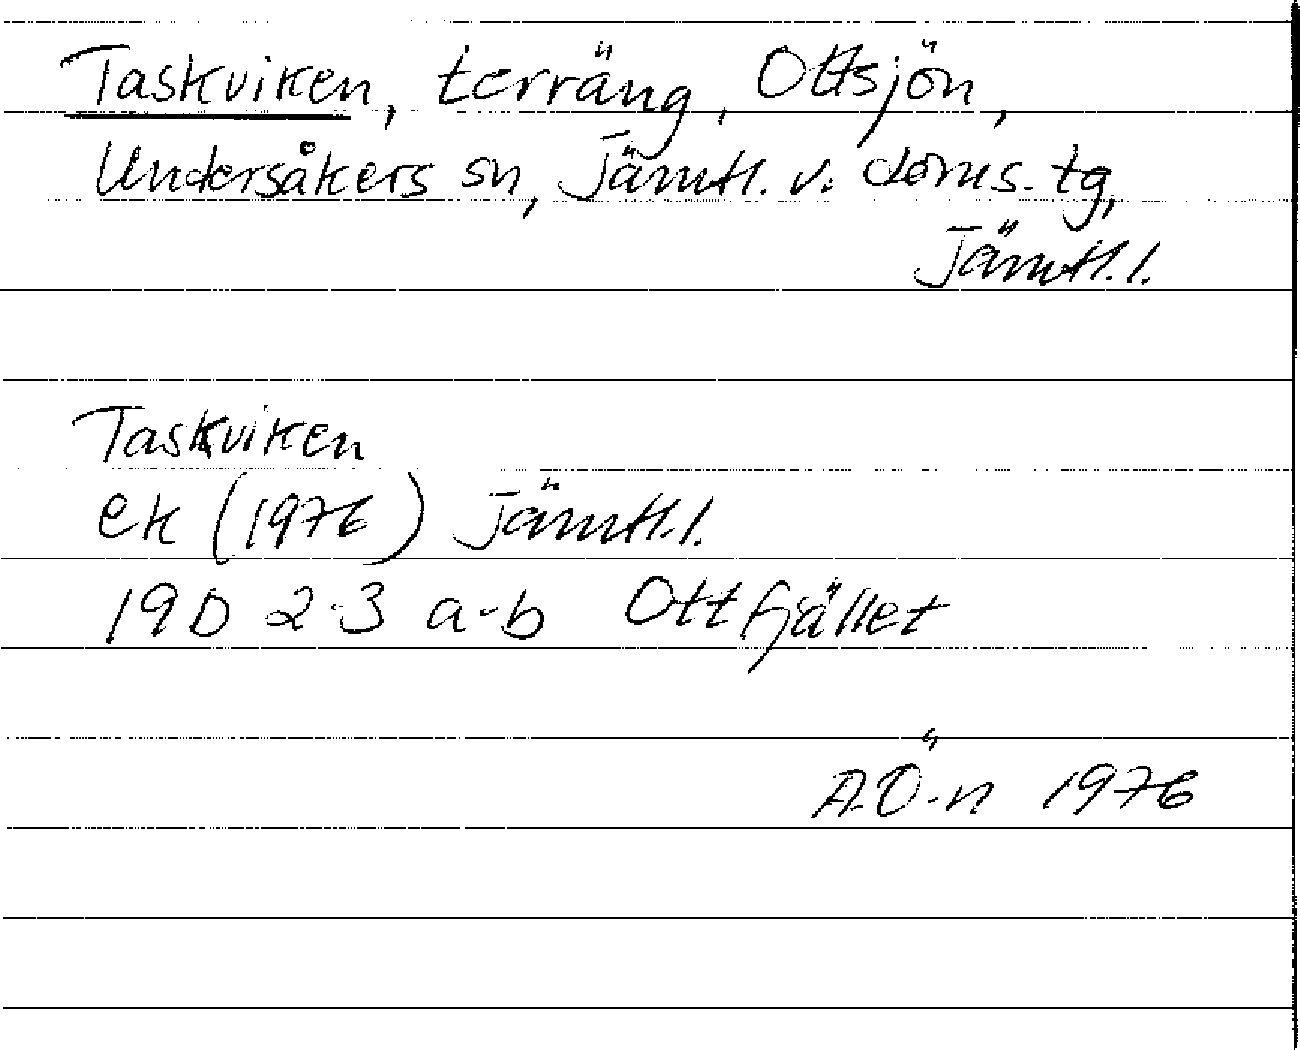 Taskviken, terräng, Ottsjön,
Undersåkers sn, Jämtl. v. doms. tg,
Jämtl. l.
Taskviken
ek (1976) Jämtl. l.
19D 2-3 a-b Ottfjället
A.Ö-n 1976